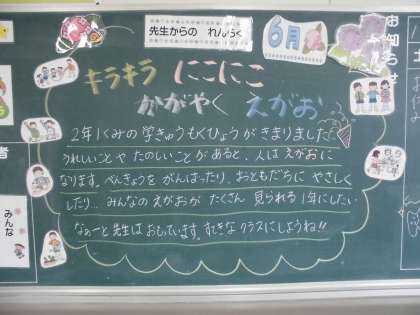 先生からの れんらく
6月
お知らせ
キラキラ にこにこ
かがやく えがお
2年1くみの 学きゅうもくひょうが きまりました
うれしいことや たのしいことが あると、人は えがおに
なります。べんきょうを がんばったり、おともだちに やさしく
したり… みんなの えがおが たくさん 見られる 1年にしたい
なぁーと 先生は おもっています。すてきな クラスにしようね!!
者
みんな